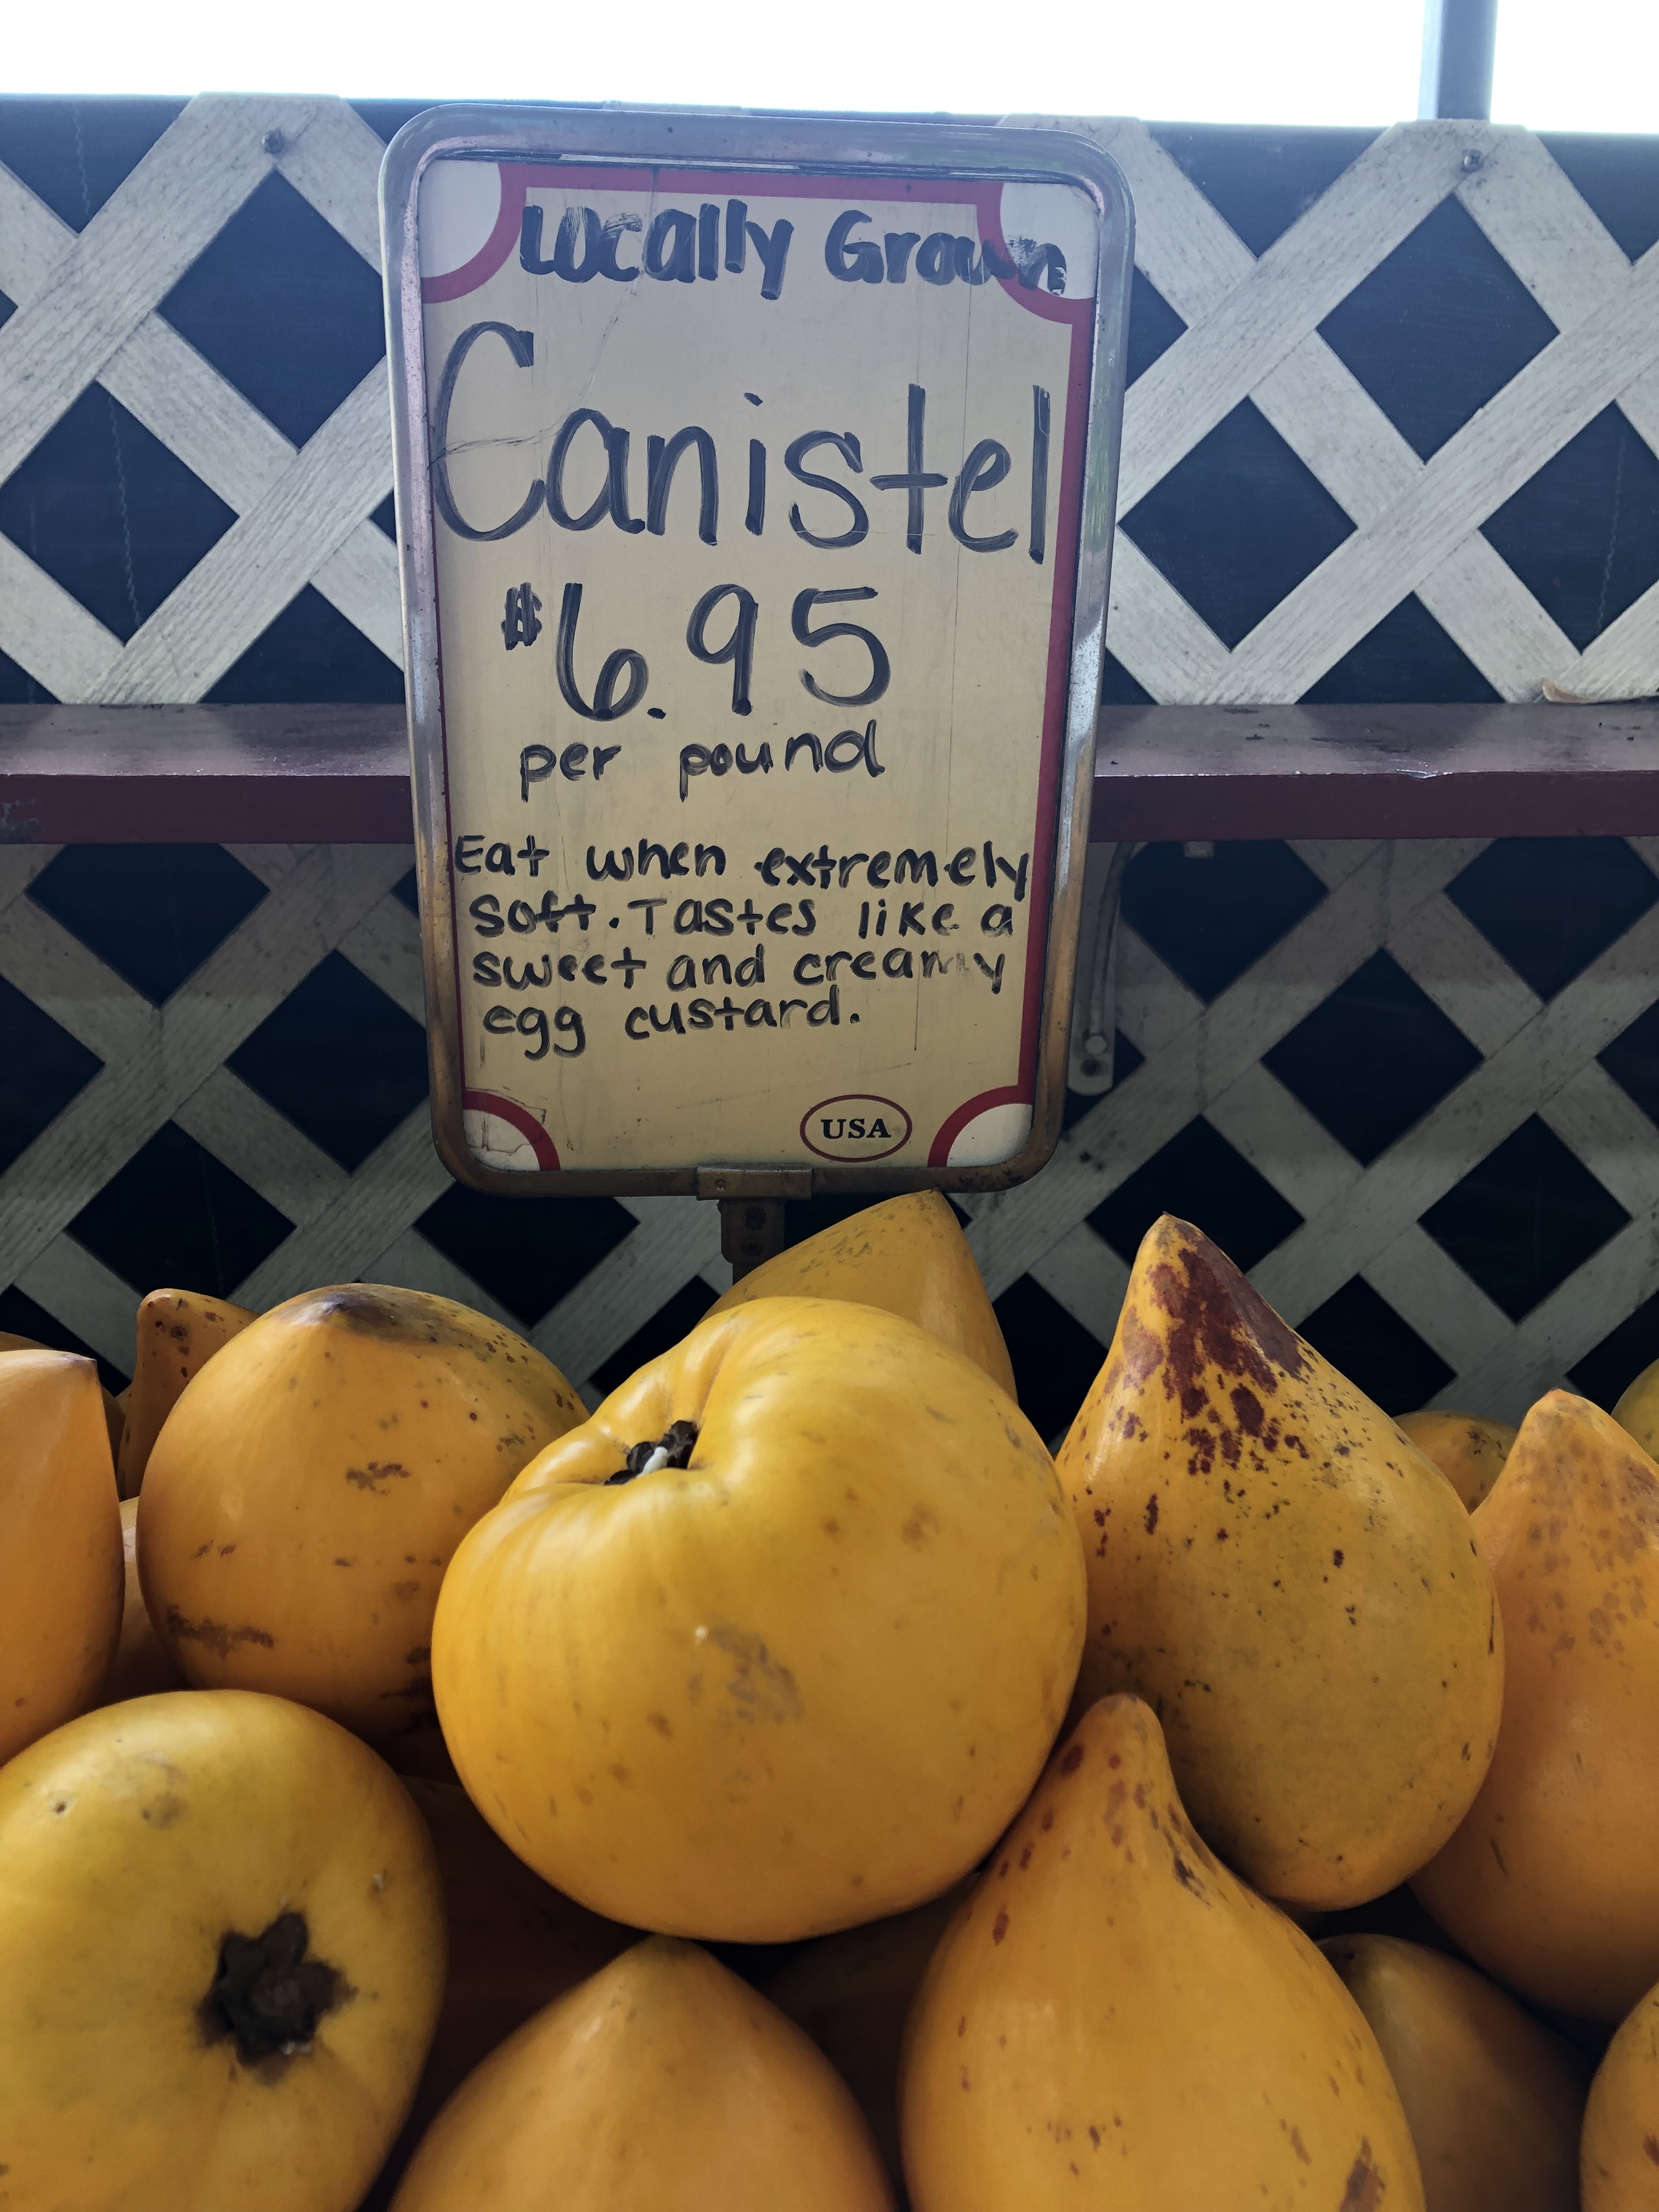 Locally Grown
Canistel
$6.95
per pound
Eat when extremely
soft. Tastes like a
sweet and creamy
egg custard.
USA